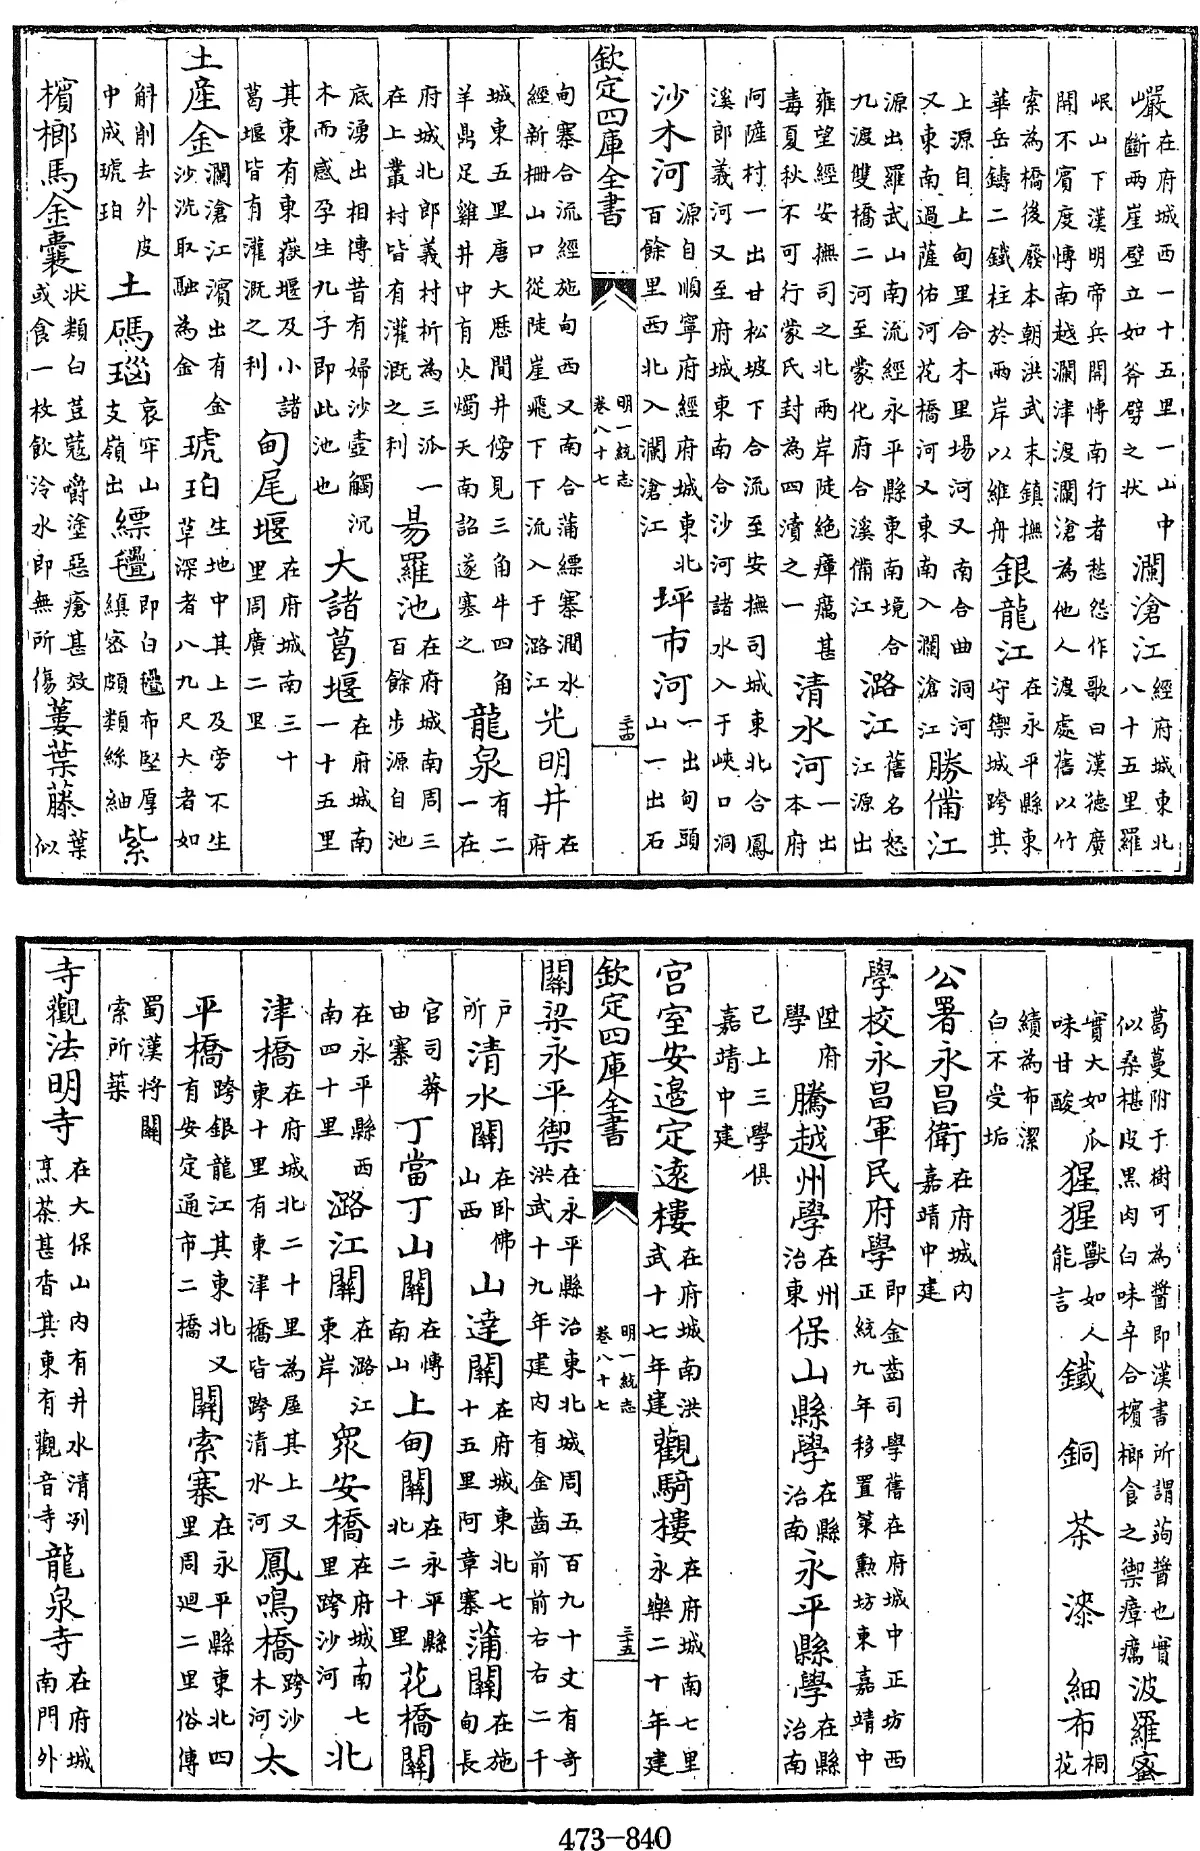 巖在府城西一十五里一山中斷兩崖壁立如斧劈之狀瀾滄江經府城東北八十五里羅
岷山下漢明帝兵開博南行者愁怨作歌曰漢德廣開不賓度博南越瀾津渡瀾滄為他人渡處舊以竹
索為橋後廢本朝洪武末鎮撫華岳鑄二鐵柱於兩岸以維舟銀龍江在永平縣東守禦城跨其
上源自上甸里合木里場河又南合曲洞河又東南過薩佑河花橋河又東南入瀾滄江勝備江
源出羅武山南流經永平縣東南境合九渡雙橋二河至蒙化府合溪備江潞江舊名怒江源出
雍望經安撫司之北兩岸陡絶瘴癘甚毒夏秋不可行蒙氏封為四瀆之一清水河一出本府
阿薩村一出甘松坡下合流至安撫司城東北合鳳溪郎義河又至府城東南合沙河諸水入于峽口洞
沙木河源自順寧府經府城東北百餘里西北入瀾滄江坪市河一出甸頭山一出石
欽定四庫全書
明一統志
卷八十七
三十四
甸寨合流經施甸西又南合蒲縹寨澗水經新柵山口從陡崖飛下下流入于潞江光明井在府
城東五里唐大厯間井傍見三角牛四角羊鼎足雞井中有火燭天南詔遂塞之龍泉有二一在
府城北郎義村析為三派一在上叢村皆有灌溉之利易羅池在府城南周三百餘步源自池
底湧出相傳昔有婦沙壺觸沉木而感孕生九子即此池也大諸葛堰在府城南一十五里
其東有東嶽堰及小諸葛堰皆有灌溉之利甸尾堰在府城南三十里周廣二里
土産金瀾滄江濵出有金沙洗取融為金琥珀生地中其上及旁不生草深者八九尺大者如
斛削去外皮中成琥珀土碼瑙哀牢山支嶺出縹㲲即白㲲布堅厚縝密頗類絲紬紫
檳榔馬金囊狀類白荳蔻嚼塗惡瘡甚效或食一枚飲冷水即無所傷蔞葉藤葉似
葛蔓附于樹可為醬即漢書所謂蒟醬也實似桑椹皮黑肉白味辛合檳榔食之禦瘴癘波羅蜜
實大如瓜味甘酸猩猩獸如人能言鐵銅茶漆細布桐花
績為布潔白不受垢
公署永昌衛在府城内嘉靖中建
學校永昌軍民府學即金齒司學舊在府城中正坊西正統九年移置䇿勲坊東嘉靖中
陞府學騰越州學在州治東保山縣學在縣治南永平縣學在縣治南
已上三學俱嘉靖中建
宫室安邊定遠樓在府城南洪武十七年建觀騎樓在府城南七里永樂二十年建
欽定四庫全書
明一統志
卷八十七
三十五
關梁永平禦在永平縣治東北城周五百九十丈有奇洪武十九年建内有金齒前前右右二千
户所清水關在卧佛山西山達關在府城東北七十五里阿章寨蒲關在施甸長
官司莾由寨丁當丁山關在博南山上甸關在永平縣北二十里花橋關
在永平縣西南四十里潞江關在潞江東岸衆安橋在府城南七里跨沙河北
津橋在府城北二十里為屋其上又東十里有東津橋皆跨清水河鳳鳴橋跨沙木河太
平橋跨銀龍江其東北又有安定通市二橋關索寨在永平縣東北四里周廻二里俗傳
蜀漢將關索所築
寺觀法明寺在大保山内有井水清冽烹茶甚香其東有觀音寺龍泉寺在府城南門外
473-840